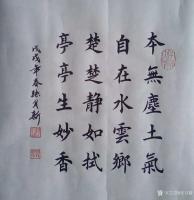 本無塵土氣
自在水雲鄉
楚楚静如拭
亭亭生妙香
戊戌年春